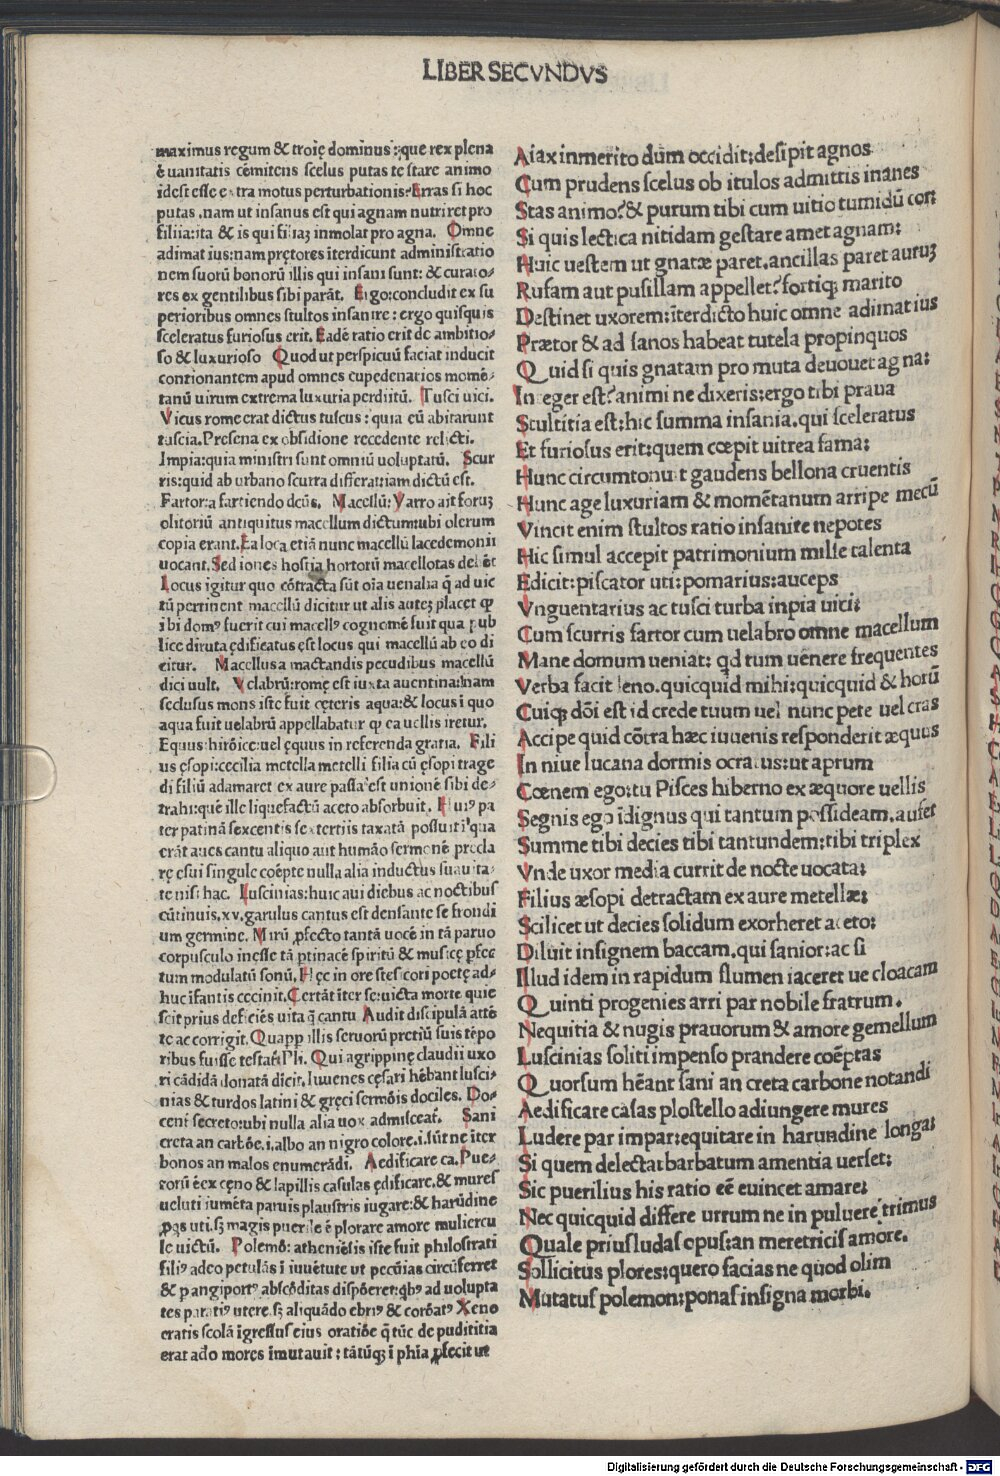 LIBER SECVNDVS
maximus regum & troię dominus :que rex plena
ē uanitatis cēmitens scelus putas te stare animo
idest esse extra motus perturbationis? Erras si hoc
putas .nam ut insanus est qui agnam nutriret pro
filia:ita & is qui filiaȝ inmolat pro agna. Omne
adimat ius:nam prętores iterdicunt administratio
nem suorū bonorū illis qui insani sunt: & curato-
res ex gentilibus sibi parāt. Ergo:concludit ex su
perioribus omnes stultos insanire : ergo quisquis
sceleratus furiosus erit. Eadē ratio erit de ambitio-
so & luxurioso Quod ut perspicuū faciat inducit
contionantem apud omnes cupedenarios momē-
tanū uirum extrema luxuria perditū. Tusci uici.
Vicus rome erat dictus tuscus : quia eū abitarunt
tuscia. Presena ex obsidione recedente relicti.
Impia:quia ministri sunt omniū voluptatū. Scur
ris:quid ab urbano scurra differat:iam dictū est.
Fartor:a fartiendo dcūs. Macellū: Varro ait foruȝ
olitoriū antiquitus macellum dictum:ubi olerum
copia erant.Ea loca etiā nunc macellū lacedemonii
uocant.Sed iones hostia hortorū macellotas
Locus igitur quo cōtracta sūt oīa uenalia q̄ ad uic
tū pertinent macellū dicitur ut alis auteȝ placet qp
ibi domꝰ fuerit cui macellꝰ cognomē fuit qua pub
lice diruta ędificatus est locus qui macellū ab eo di
citur. Macellus a mactandis pecudibus macellū
dici uult. Velabrū:romę est iuxta auentina:nam
seclusus mons iste fuit cęteris aqua:& locus ī quo
aqua fuit uelabrū appellabatur qp ea uellis iretur.
Equus:hirōice:uel ęquus in referenda gratia. Fili
us ęsopi:cecilia metella metelli filia cū ęsopi trage
di filiū adamaret ex aure passa est unionē sibi de-
trahi:quē ille liquefactū aceto absorbuit. Huiꝰ pa
ter patinā sexcentis sextertiis taxatā posuit ī qua
erāt aues cantu aliquo aut humāo sermone precla
rę esui singule coēpte nulla alia inductus suauita-
te nisi hac. Luscinias:huic aui diebus ac noctibus
cūtinuis.xv.garulus cantus est densante se frondi
um germine. Mirū ꝓfecto tantā uocē in tā paruo
corpusculo inesse tā ptinacē spiritū & musicę pfec
tum modulatū sonū. Hęc in ore stesicori poetę ad-
huc īfantis cecinit.Certāt īter se:uicta morte quie
scit prius deficiēs uita q̄ cantu Audit discipulā attē
te ac corrigit. Quapp illis seruorū pretiū suis tēpo
ribus fuisse testat Pli. Qui agrippinę claudii uxo
ri cādidā donatā dicit. Iuuenes cęsari hēbant lusci-
nias & turdos latini & gręci sermōis dociles. Do-
cent secreto:ubi nulla alia uox admisceat. Sani
creta an carbōe.i.albo an nigro colore.i.sūt ne īter
bonos an malos enumerādi. Aedificare ca. Pue-
rorū ē ex cęno & lapillis casulas ędificare. & mures
ueluti iumēta paruis plaustris iugare:& harūdine
uti. sȝ magis puerile ē plorare amore muliercu
le uictū. Polemō: atheniēsis iste fuit philostrati
filiꝰ adeo petulās ī iuuētute ut pecūias circūferret
& p angiportꝰ abscōditas dispōeret:qbꝰ ad uolupta
tes paratiꝰ utere. sȝ aliquādo ebriꝰ & corōatꝰ Xeno
cratis scolā īgressus eius oratiōe q̄ tūc de pudititia
erat ado mores īmutauit : tātūqȝ ī phīa ꝓfecit ut
Aiax inmerito dum occidit:desipit agnos
Cum prudens scelus ob titulos admittis inanes
Stas animo?& purum tibi cum uitio tumidū cor:
Si quis lectica nitidam gestare amet agnam:
Huic uestem ut gnatæ paret.ancillas paret auruȝ
Rufam aut pusillam appellet?fortiqȝ marito
Destinet uxorem:iterdicto huic omne adimat ius
Prætor & ad sanos habeat tutela propinquos
Quid si quis gnatam pro muta deuouet agna:
Integer est?animi ne dixeris:ergo tibi praua
Stultitia est:hic summa insania.qui sceleratus
Et furiosus erit:quem cœpit uitrea fama:
Hunc circumtonuit gaudens bellona cruentis
Hunc age luxuriam & momētanum arripe mecū
Vincit enim stultos ratio insanire nepotes
Hic simul accepit patrimonium mille talenta
Edicit:piscator uti:pomarius:auceps
Vnguentarius ac tusci turba inpia uici:
Cum scurris fartor cum uelabro omne macellum
Mane domum ueniat: qd tum uēnere frequentes
Verba facit leno.quicquid mihi:quicquid & horū
Cuiqȝ dōi est id crede tuum uel nunc pete uel cras
Accipe quid cōtra hæc iuuenis responderit æquus
In niue lucana dormis ocratus:ut aprum
Cœnem ego:tu Pisces hiberno ex æquore uellis
Segnis ego īdignus qui tantum possideam.aufer
Summe tibi decies tibi tantundem:tibi triplex
Vnde uxor media currit de nocte uocata:
Filius æsopi detractam ex aure metellæ:
Scilicet ut decies solidum exorheret aceto:
Diluit insignem baccam.qui sanior:ac si
Illud idem in rapidum flumen iaceret ue cloacam
Quinti progenies arri par nobile fratrum.
Nequitia & nugis prauorum & amore gemellum
Luscinias soliti impenso prandere coēptas
Quorsum hēant sani an creta carbone notandi
Aedificare casas plostello adiungere mures
Ludere par impar:equitare in harundine longa:
Si quem delectat barbatum amentia uerset:
Sic puerilius his ratio eē euincet amare:
Nec quicquid differe utrum ne in puluere trimus
Quale prius ludas opus:an meretricis amore.
Sollicitus plores:quero facias ne quod olim
Mutatus polemon:ponas insigna morbi.
Digitalisierung gefördert durch die Deutsche Forschungsgemeinschaft - DFG